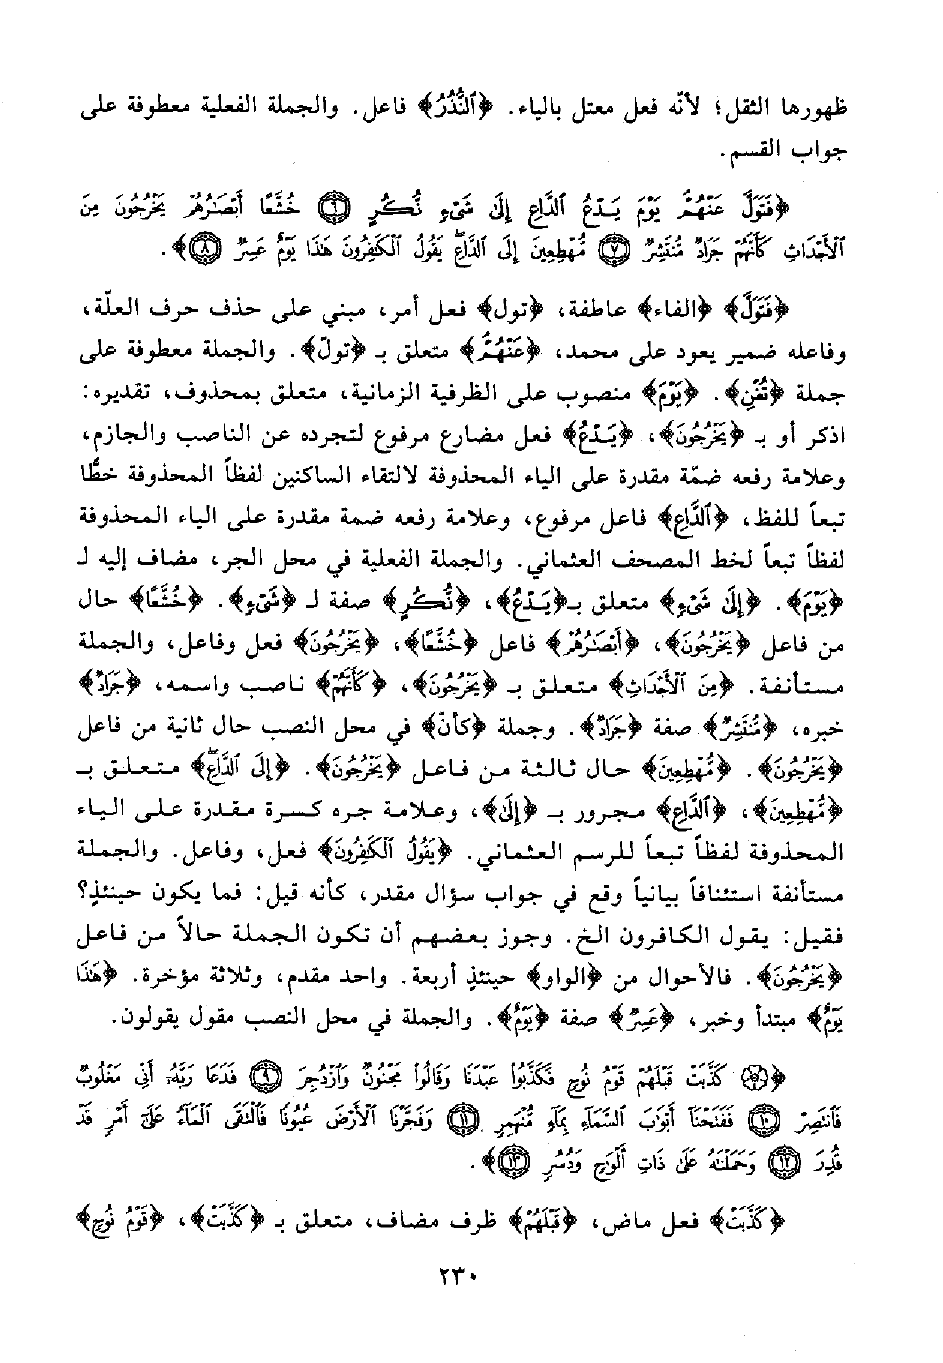 ظهورها الثقل؛ لأنّه فعل معتل بالياء. ﴿ٱلنُّذُرُ﴾ فاعل. والجملة الفعلية معطوفة على
جواب القسم.
﴿فَتَوَلَّ عَنْهُمْ يَوْمَ يَدْعُ ٱلدَّاعِ إِلَىٰ شَىْءٍ نُّكُرٍ ۝٦ خُشَّعًا أَبْصَٰرُهُمْ يَخْرُجُونَ مِنَ
ٱلْأَجْدَاثِ كَأَنَّهُمْ جَرَادٌ مُّنتَشِرٌ ۝٧ مُّهْطِعِينَ إِلَى ٱلدَّاعِ ۖ يَقُولُ ٱلْكَٰفِرُونَ هَٰذَا يَوْمٌ عَسِرٌ ۝٨﴾.
﴿فَتَوَلَّ﴾ ﴿الفاء﴾ عاطفة، ﴿تول﴾ فعل أمر، مبني على حذف حرف العلّة،
وفاعله ضمير يعود على محمد، ﴿عَنْهُمْ﴾ متعلق بـ ﴿تولّ﴾. والجملة معطوفة على
جملة ﴿تُغْنِ﴾. ﴿يَوْمَ﴾ منصوب على الظرفية الزمانية، متعلق بمحذوف، تقديره:
اذكر أو بـ ﴿يَخْرُجُونَ﴾، ﴿يَدْعُ﴾ فعل مضارع مرفوع لتجرده عن الناصب والجازم،
وعلامة رفعه ضمّة مقدرة على الياء المحذوفة لالتقاء الساكنين لفظاً المحذوفة خطًّا
تبعاً للفظ، ﴿ٱلدَّاعِ﴾ فاعل مرفوع، وعلامة رفعه ضمة مقدرة على الياء المحذوفة
لفظاً تبعاً لخط المصحف العثماني. والجملة الفعلية في محل الجر، مضاف إليه لـ
﴿يَوْمَ﴾. ﴿إِلَىٰ شَىْءٍ﴾ متعلق بـ﴿يَدْعُ﴾، ﴿نُّكُرٍ﴾ صفة لـ ﴿شَىْءٍ﴾. ﴿خُشَّعًا﴾ حال
من فاعل ﴿يَخْرُجُونَ﴾، ﴿أَبْصَٰرُهُمْ﴾ فاعل ﴿خُشَّعًا﴾، ﴿يَخْرُجُونَ﴾ فعل وفاعل، والجملة
مستأنفة. ﴿مِنَ ٱلْأَجْدَاثِ﴾ متعلق بـ ﴿يَخْرُجُونَ﴾، ﴿كَأَنَّهُمْ﴾ ناصب واسمه، ﴿جَرَادٌ﴾
خبره، ﴿مُّنتَشِرٌ﴾ صفة ﴿جَرَادٌ﴾. وجملة ﴿كأنّ﴾ في محل النصب حال ثانية من فاعل
﴿يَخْرُجُونَ﴾. ﴿مُّهْطِعِينَ﴾ حال ثالثة من فاعل ﴿يَخْرُجُونَ﴾. ﴿إِلَى ٱلدَّاعِ ۖ﴾ متعلق بـ
﴿مُّهْطِعِينَ﴾، ﴿ٱلدَّاعِ﴾ مجرور بـ ﴿إِلَى﴾، وعلامة جره كسرة مقدرة على الياء
المحذوفة لفظاً تبعاً للرسم العثماني. ﴿يَقُولُ ٱلْكَٰفِرُونَ﴾ فعل، وفاعل. والجملة
مستأنفة استئنافاً بيانياً وقع في جواب سؤال مقدر، كأنه قيل: فما يكون حينئذٍ؟
فقيل: يقول الكافرون الخ. وجوز بعضهم أن تكون الجملة حالاً من فاعل
﴿يَخْرُجُونَ﴾. فالأحوال من ﴿الواو﴾ حينئذٍ أربعة. واحد مقدم، وثلاثة مؤخرة. ﴿هَٰذَا
يَوْمٌ﴾ مبتدأ وخبر، ﴿عَسِرٌ﴾ صفة ﴿يَوْمٌ﴾. والجملة في محل النصب مقول يقولون.
﴿۞ كَذَّبَتْ قَبْلَهُمْ قَوْمُ نُوحٍ فَكَذَّبُوا۟ عَبْدَنَا وَقَالُوا۟ مَجْنُونٌ وَٱزْدُجِرَ ۝٩ فَدَعَا رَبَّهُۥٓ أَنِّى مَغْلُوبٌ
فَٱنتَصِرْ ۝١٠ فَفَتَحْنَآ أَبْوَٰبَ ٱلسَّمَآءِ بِمَآءٍ مُّنْهَمِرٍ ۝١١ وَفَجَّرْنَا ٱلْأَرْضَ عُيُونًا فَٱلْتَقَى ٱلْمَآءُ عَلَىٰٓ أَمْرٍ قَدْ
قُدِرَ ۝١٢ وَحَمَلْنَٰهُ عَلَىٰ ذَاتِ أَلْوَٰحٍ وَدُسُرٍ ۝١٣﴾.
﴿كَذَّبَتْ﴾ فعل ماض، ﴿قَبْلَهُمْ﴾ ظرف مضاف، متعلق بـ ﴿كَذَّبَتْ﴾، ﴿قَوْمُ نُوحٍ﴾
٢٣٠